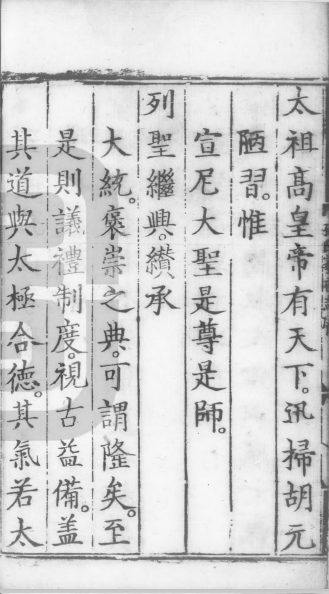 太祖高皇帝有天下。汛掃胡元
陋習。惟
宣尼大聖是尊是師。
列聖繼興。纘承
大統。褒崇之典。可謂隆矣。至
是則議禮制度。視古益備。蓋
其道與太極合德。其氣若太